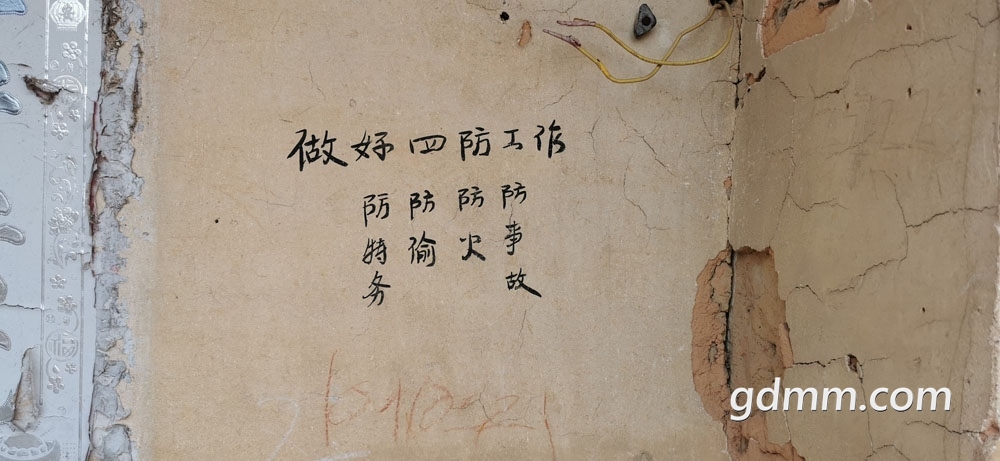 做好四防工作
防特务
防偷
防火
防事故
gdmm.com